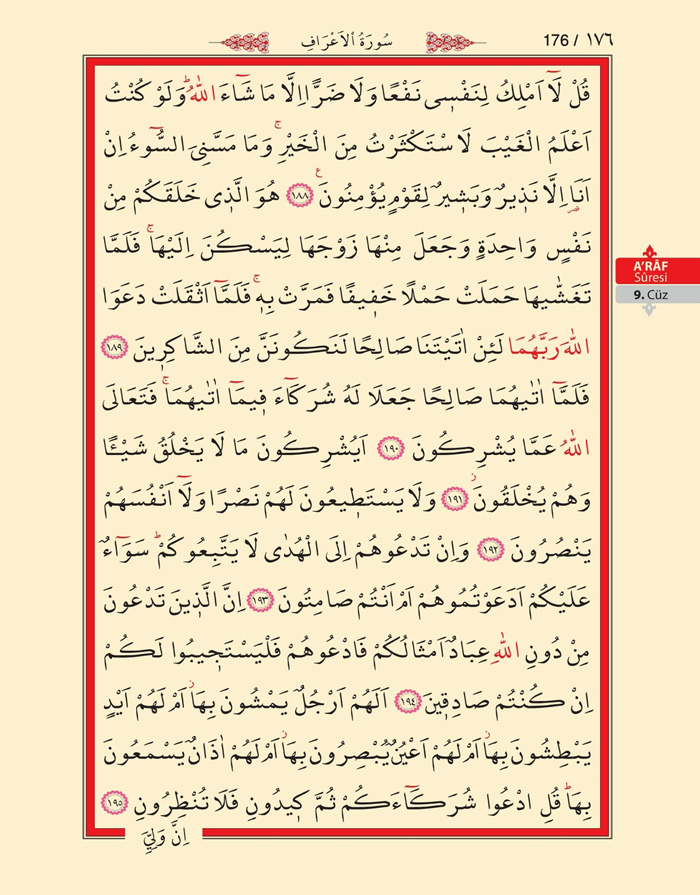 سُورَةُ الْاَعْرَافِ
176 / ١٧٦
قُلْ لَٓا اَمْلِكُ لِنَفْسٖي نَفْعًا وَلَا ضَرًّا اِلَّا مَا شَٓاءَ اللّٰهُؕ وَلَوْ كُنْتُ
اَعْلَمُ الْغَيْبَ لَاسْتَكْثَرْتُ مِنَ الْخَيْرِۚ وَمَا مَسَّنِيَ السُّٓوءُ اِنْ
اَنَا۬ اِلَّا نَذٖيرٌ وَبَشٖيرٌ لِقَوْمٍ يُؤْمِنُونَࣖ ﴿١٨٨﴾ هُوَ الَّذٖي خَلَقَكُمْ مِنْ
نَفْسٍ وَاحِدَةٍ وَجَعَلَ مِنْهَا زَوْجَهَا لِيَسْكُنَ اِلَيْهَاۚ فَلَمَّا
تَغَشّٰيهَا حَمَلَتْ حَمْلًا خَفٖيفًا فَمَرَّتْ بِهٖۚ فَلَمَّٓا اَثْقَلَتْ دَعَوَا
اللّٰهَ رَبَّهُمَا لَئِنْ اٰتَيْتَنَا صَالِحًا لَنَكُونَنَّ مِنَ الشَّاكِرٖينَ ﴿١٨٩﴾
فَلَمَّٓا اٰتٰيهُمَا صَالِحًا جَعَلَا لَهُ شُرَكَٓاءَ فٖيمَٓا اٰتٰيهُمَاۚ فَتَعَالَى
اللّٰهُ عَمَّا يُشْرِكُونَ ﴿١٩٠﴾ اَيُشْرِكُونَ مَا لَا يَخْلُقُ شَيْـًٔا
وَهُمْ يُخْلَقُونَؗ ﴿١٩١﴾ وَلَا يَسْتَطٖيعُونَ لَهُمْ نَصْرًا وَلَٓا اَنْفُسَهُمْ
يَنْصُرُونَ ﴿١٩٢﴾ وَاِنْ تَدْعُوهُمْ اِلَى الْهُدٰى لَا يَتَّبِعُوكُمْؕ سَوَٓاءٌ
عَلَيْكُمْ اَدَعَوْتُمُوهُمْ اَمْ اَنْتُمْ صَامِتُونَ ﴿١٩٣﴾ اِنَّ الَّذٖينَ تَدْعُونَ
مِنْ دُونِ اللّٰهِ عِبَادٌ اَمْثَالُكُمْ فَادْعُوهُمْ فَلْيَسْتَجٖيبُوا لَكُمْ
اِنْ كُنْتُمْ صَادِقٖينَ ﴿١٩٤﴾ اَلَهُمْ اَرْجُلٌ يَمْشُونَ بِهَاؗ اَمْ لَهُمْ اَيْدٍ
يَبْطِشُونَ بِهَاؗ اَمْ لَهُمْ اَعْيُنٌ يُبْصِرُونَ بِهَاؗ اَمْ لَهُمْ اٰذَانٌ يَسْمَعُونَ
بِهَاؕ قُلِ ادْعُوا شُرَكَٓاءَكُمْ ثُمَّ كٖيدُونِ فَلَا تُنْظِرُونِ ﴿١٩٥﴾
اِنَّ وَلِيِّيَ
A'RÂF
Sûresi
9. Cüz